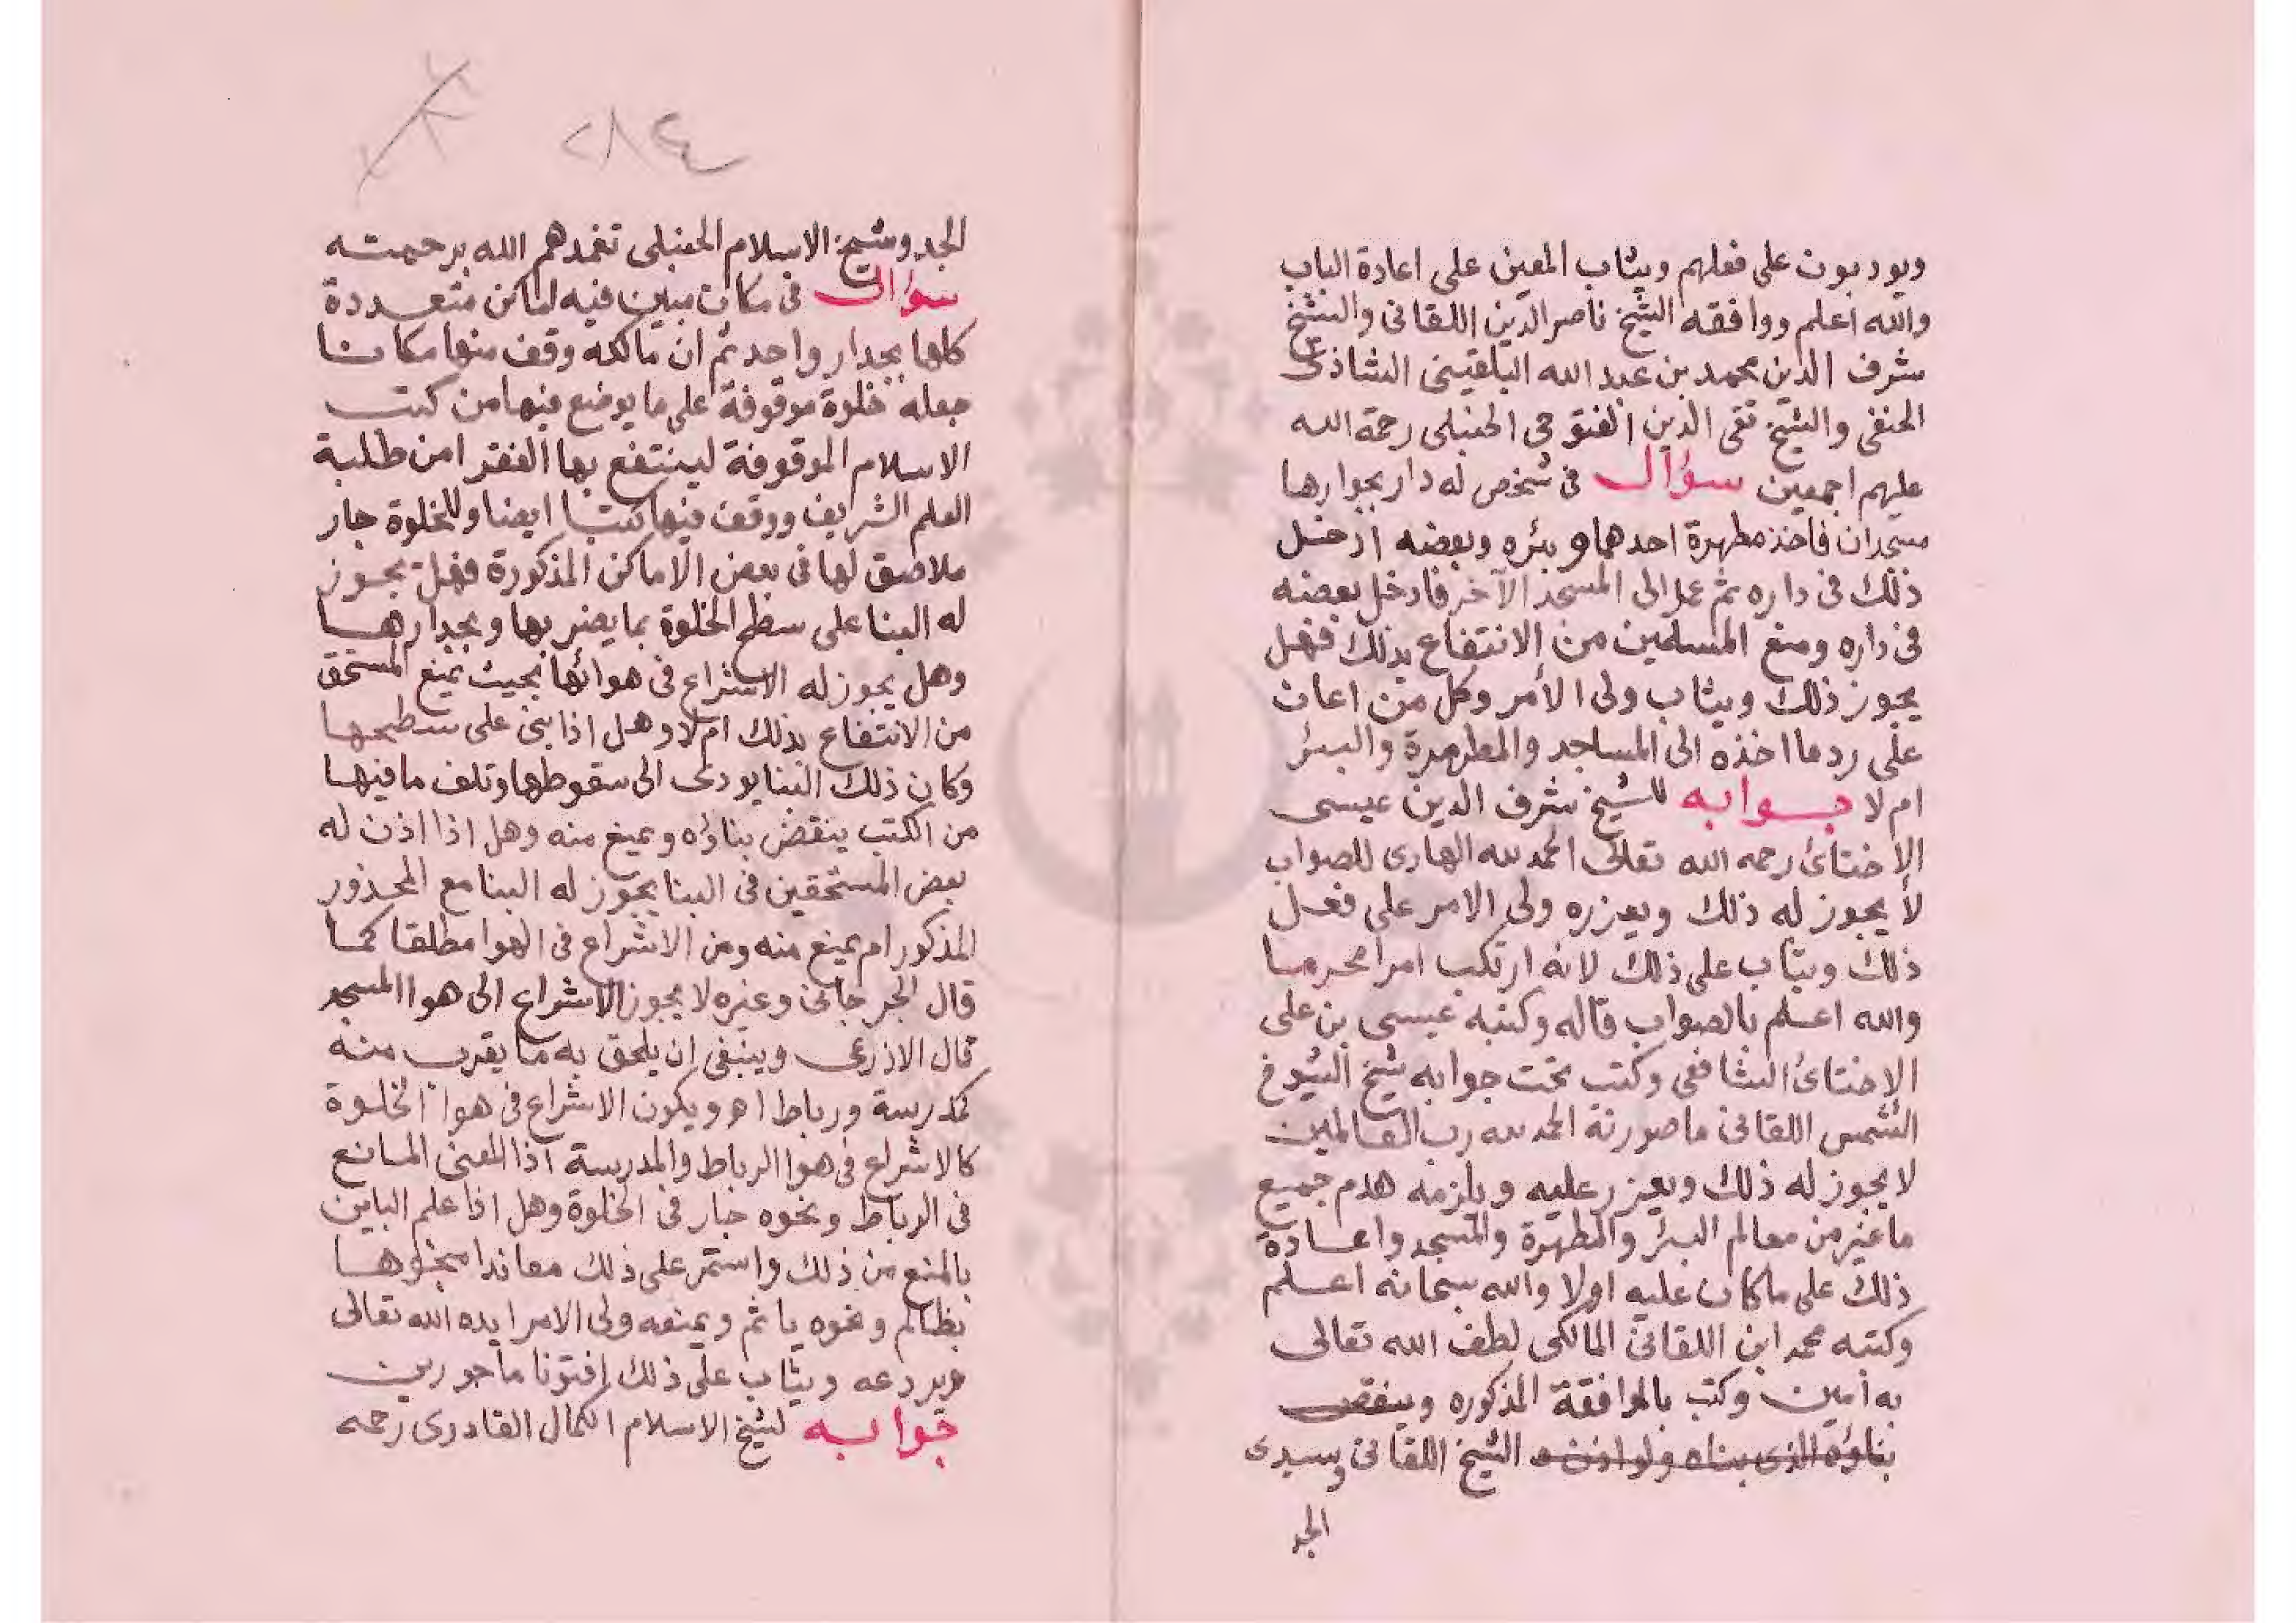 ويودبون على فعلهم ويثاب المعين على اعادة الباب
والله أعلم ووافقه الشيخ ناصر الدين اللقانى والشيخ
شرف الدين محمد بن عبد الله البلقينى الشاذى
الحنفى والشيخ تقى الدين الفتوحى الحنبلى رحمة الله
عليهم اجمعين سؤال فى شخص له دار بجوارها
مسجدان فاخذ مطهرة احدهما وبئره وبعضه ادخل
ذلك فى داره ثم عمد الى المسجد الآخر فادخل بعضه
فى داره ومنع المسلمين من الانتفاع بذلك فهل
يجوز ذلك ويثاب ولى الأمر وكل من اعان
على رد ما اخذه الى المساجد والمطهرة والبئر
ام لا جوابه للشيخ شرف الدين عيسى
الاخنائى رحمه الله تعالى الحمد لله الهادى للصواب
لا يجوز له ذلك ويعزره ولى الامر على فعل
ذلك ويثاب على ذلك لانه ارتكب امرا محرما
والله اعلم بالصواب قاله وكتبه عيسى بن على
الاخنائى الشافعى وكتب تحت جوابه شيخ الشيوخ
الشمس اللقانى ما صورته الحمد لله رب العالمين
لا يجوز له ذلك ويعزر عليه ويلزمه هدم جميع
ما غير من معالم البئر والمطهرة والمسجد واعادة
ذلك على ما كان عليه اولا والله سبحانه اعلم
وكتبه محمد ابن اللقانى المالكى لطف الله تعالى
به أمين وكتب بالموافقة المذكوره وينقض
بناؤه الذى بناه ولو اذن له الشيخ اللقانى وسيدى
الجد
٢٨٤
الجد وشيخ الاسلام الحنبلى تغمدهم الله برحمته
سؤال فى مكان مبين فيه اماكن متعددة
كلها بجدار واحد ثم ان مالكه وقف منها مكانا
جعله خلوة موقوفة على ما يوضع فيها من كتب
الاسلام الموقوفة لينتفع بها الفقرا من طلبة
العلم الشريف ووقف فيها كتبا ايضا وللخلوة جار
ملاصق لها فى بعض الاماكن المذكورة فهل يجوز
له البنا على سطح الخلوة بما يضر بها وبجدارها
وهل يجوز له الاشراع فى هوائها بحيث يمنع المستحق
من الانتفاع بذلك ام لا وهل اذا بنى على سطحها
وكان ذلك البنا يودى الى سقوطها وتلف ما فيها
من الكتب ينقض بناؤه ويمنع منه وهل اذا اذن له
بعض المستحقين فى البنا يجوز له البنا مع المحذور
المذكور ام يمنع منه ومن الاشراع فى الهوا مطلقا كما
قال الجرجانى وغيره لا يجوز الاشراع الى هوا المسجد
قال الاذرعى وينبغى ان يلحق به ما يقرب منه
كمدرسة ورباط اهـ ويكون الاشراع فى هوا الخلوة
كالاشراع فى هوا الرباط والمدرسة اذا المعنى المانع
فى الرباط ونحوه جار فى الخلوة وهل اذا علم البانى
بالمنع من ذلك واستمر على ذلك معاندا
بظالم ونحوه ياثم ويمنعه ولى الامر ايده الله تعالى
ويردعه ويثاب على ذلك افتونا مأجورين
جوابه لشيخ الاسلام الكمال القادرى رحمه